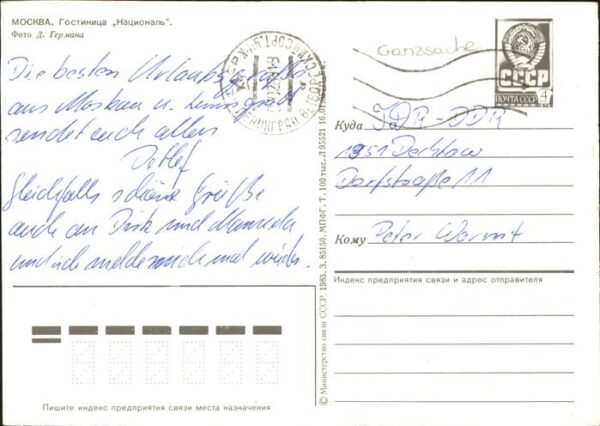 МОСКВА. Гостиница „Националь".
Фото Д. Германа
Die besten Urlaubsgrüße
aus Moskau u. Leningrad
sendet euch allen
Detlef
Gleichfalls schöne Grüße
auch an Dirk und
und ich melde mich mal wieder.
Ganzsache
СССР
ПОЧТА СССР 4
ЛЕНИНГРАД
Куда
DDR
1951 Dorfstraße 11
Кому Peter
Индекс предприятия связи и адрес отправителя
© Министерство связи СССР. 1985. З. 85150. МПФГ. Т. 100 тыс.
Пишите индекс предприятия связи места назначения